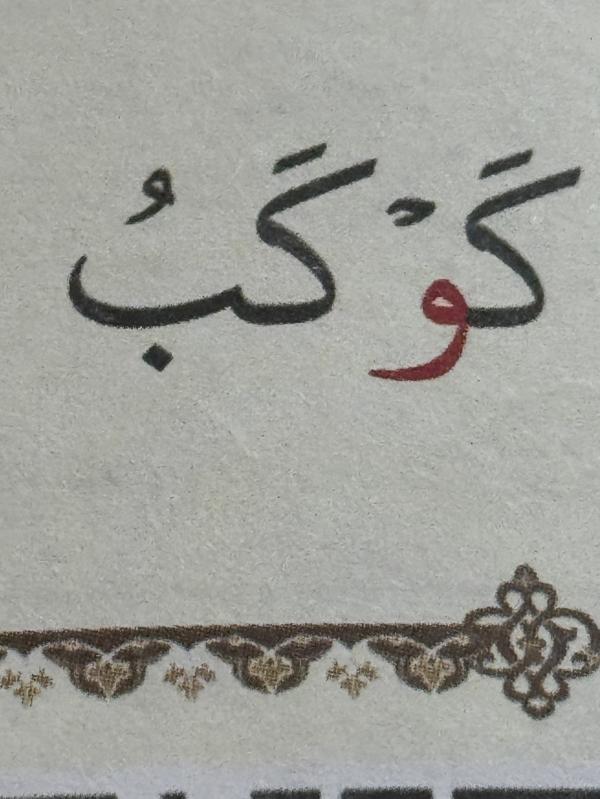 كَوْكَبُ